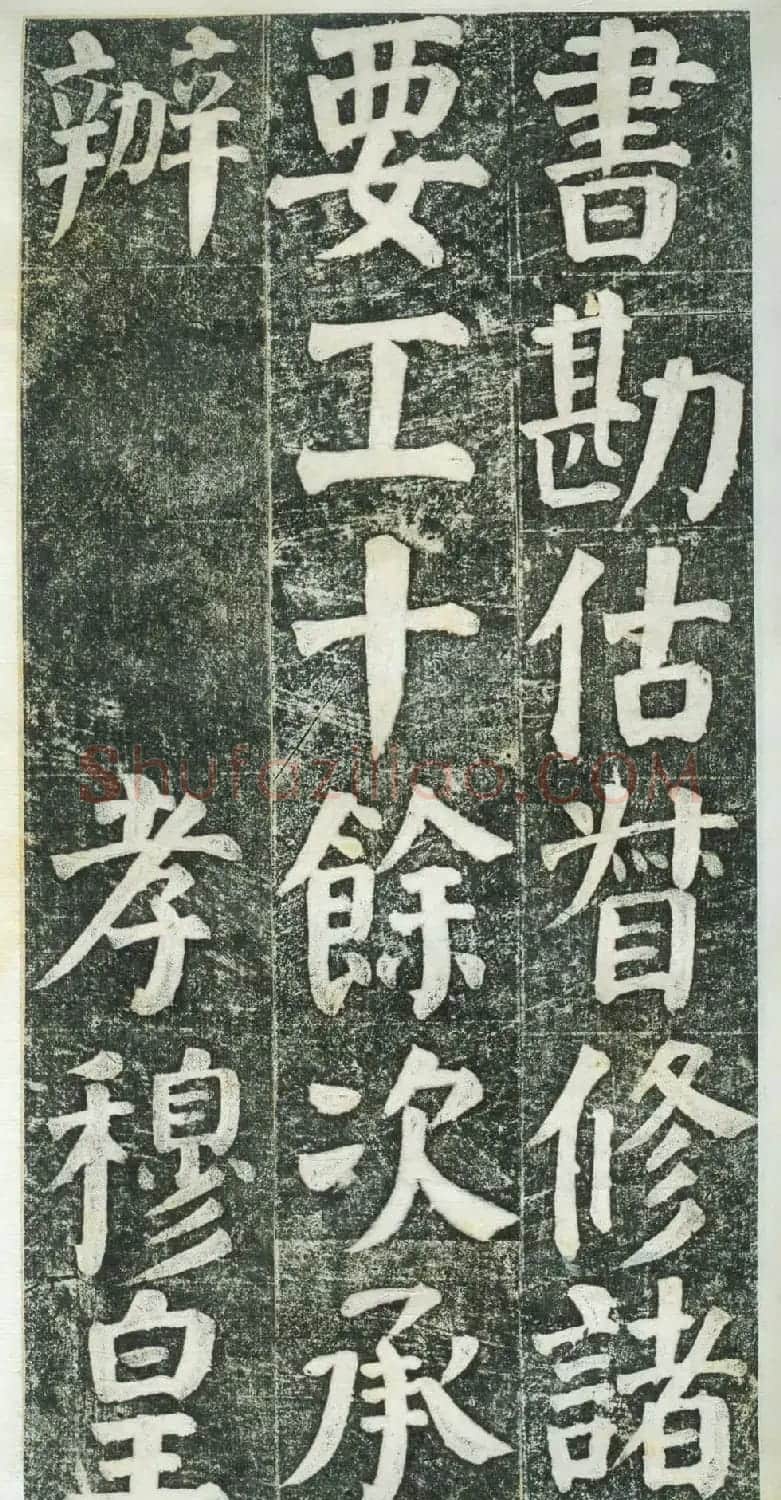 書勘估督修諸
要工十餘次承
辦 孝穆皇
Shufaziliao.COM